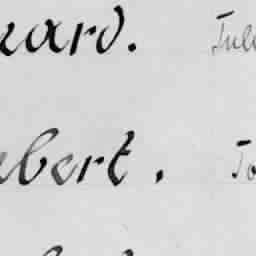 ard. Jul
bert. Jo